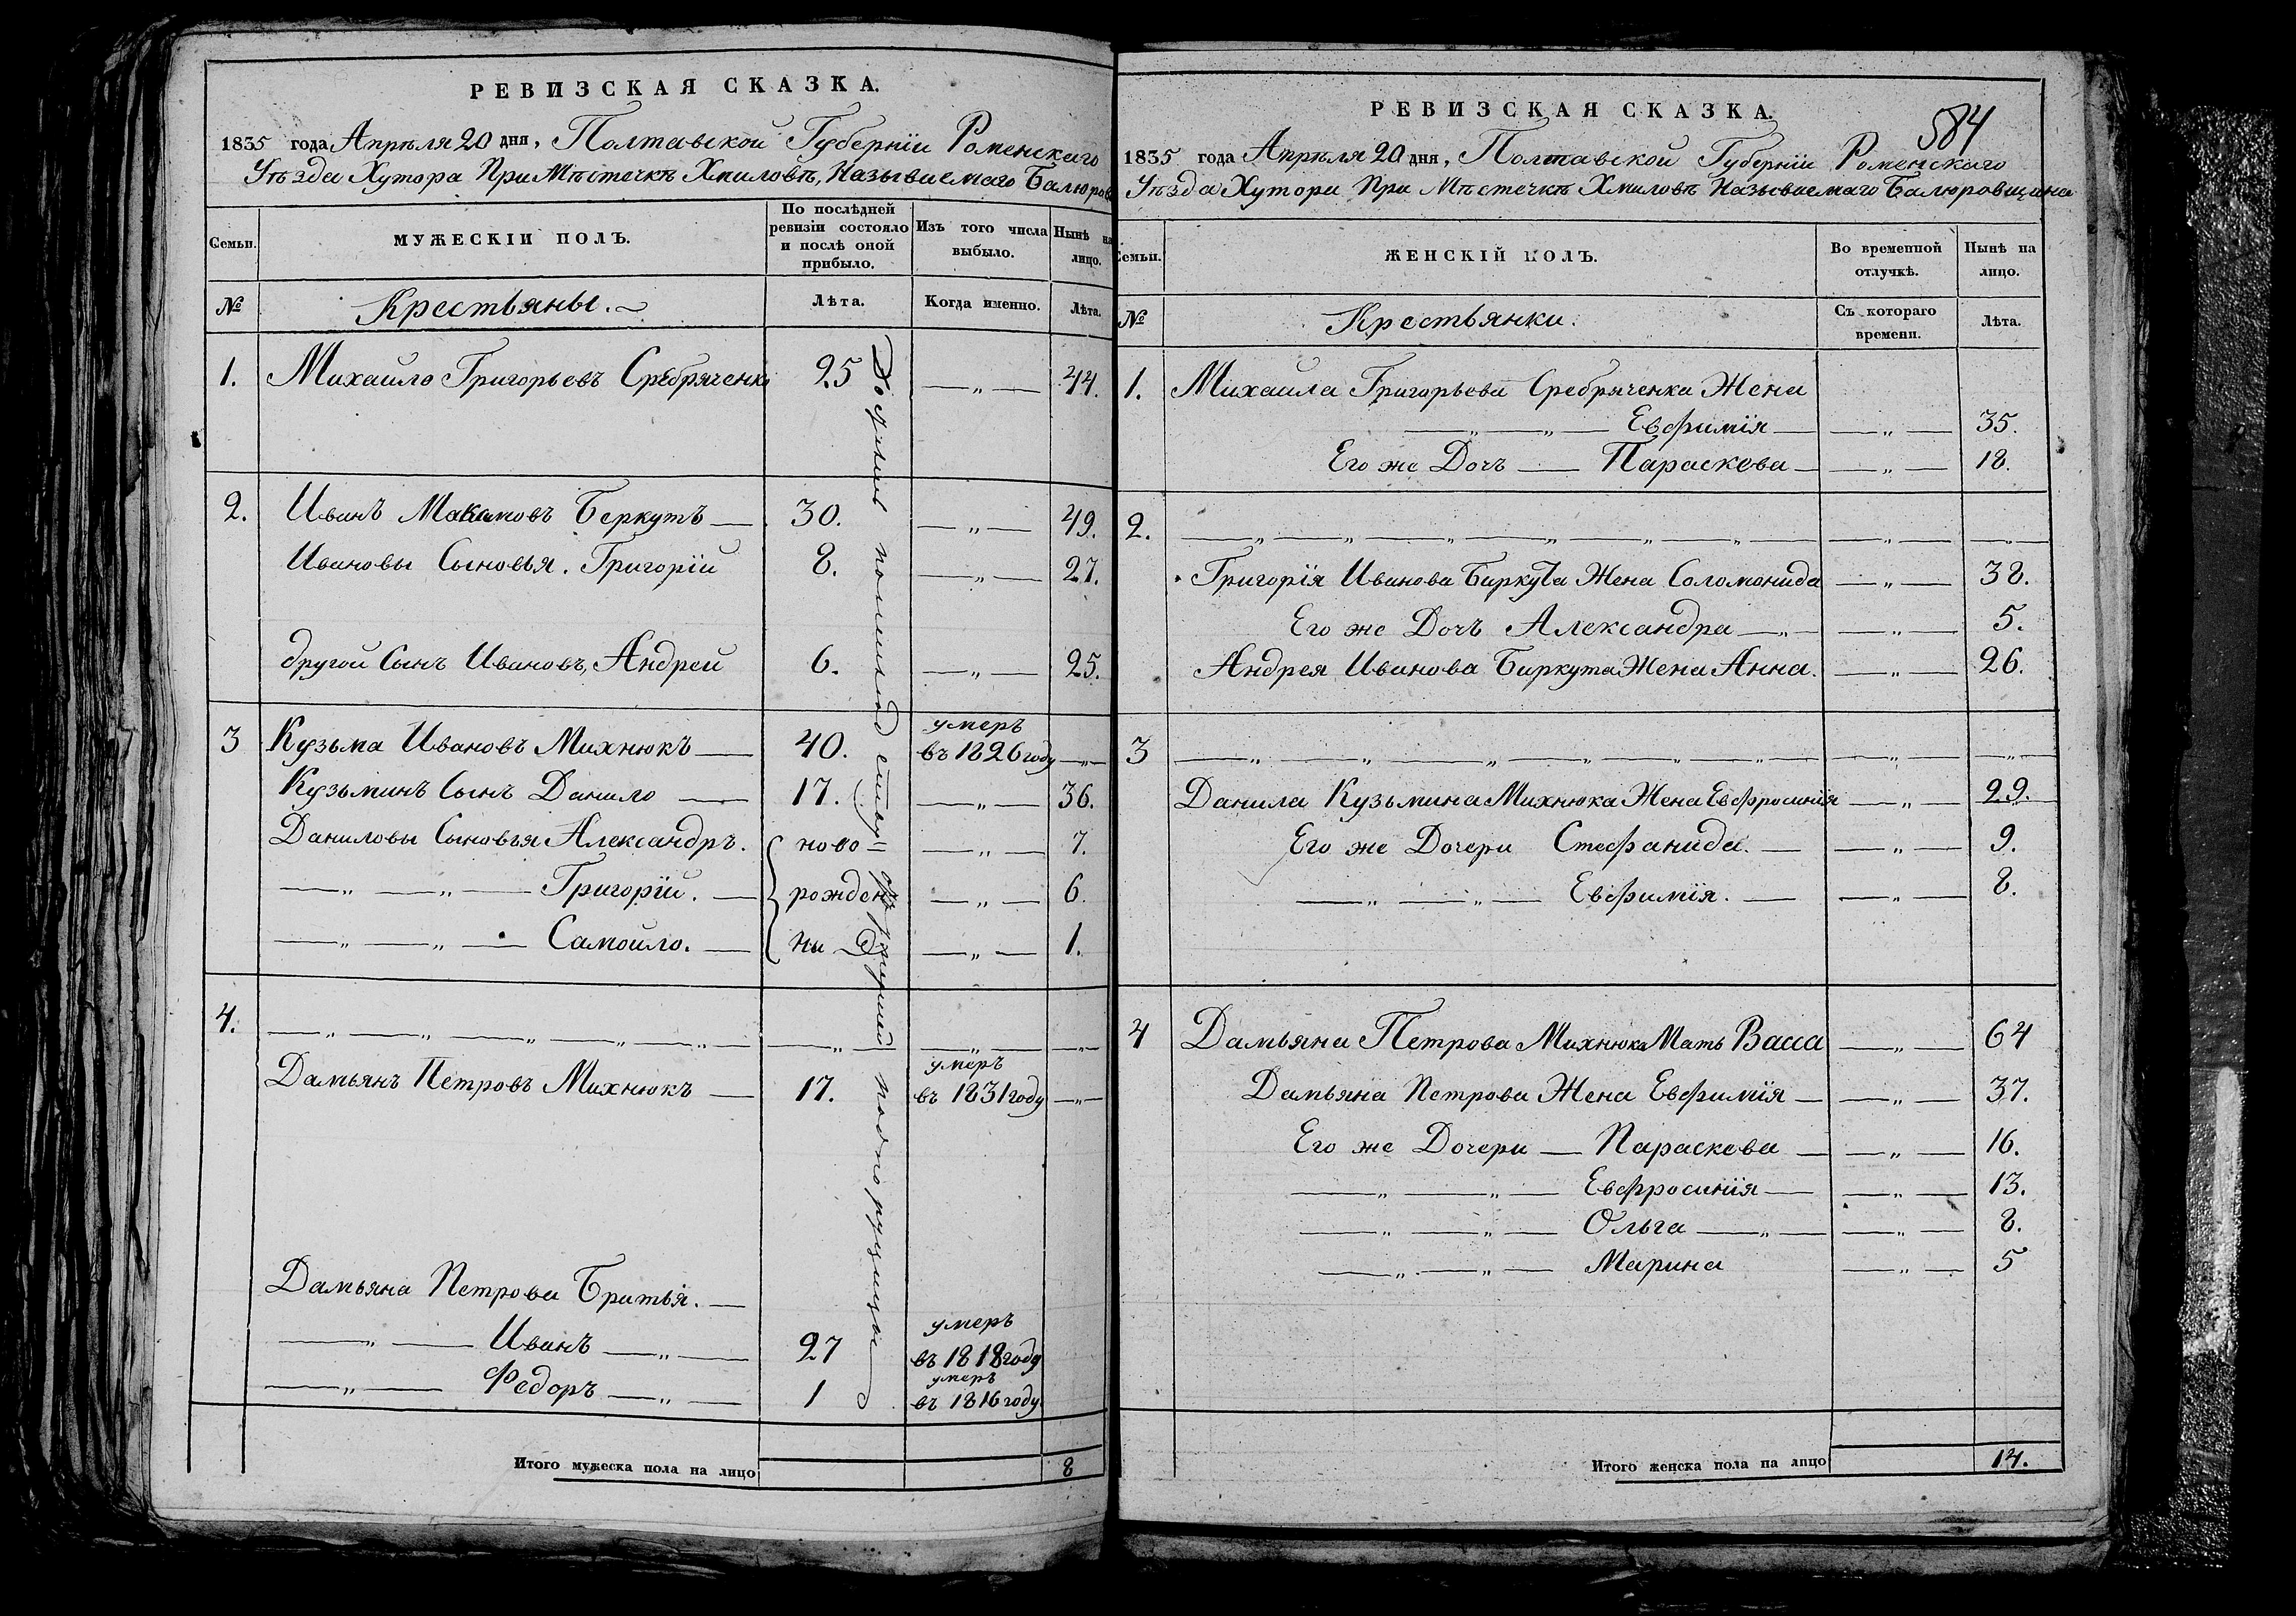 РЕВИЗСКАЯ СКАЗКА.
1835 года Апрѣля 20 дня, Полтавской Губерніи Роменского
Уѣзда Хутора При Мѣстечкѣ Хмиловѣ, Называемаго Балюров
Семьи.
МУЖЕСКІИ ПОЛЪ.
По послѣдней ревизіи состояло и послѣ оной прибыло.
Изъ того числа выбыло.
Нынѣ на лицо.
№
Крестьяны.
Лѣта.
Когда именно.
Лѣта.
1. Михайло Григорьевъ Сребряченко 25 — „ — 44.
2. Иванъ Макимовъ Беркутъ — 30. — „ — 49.
Ивановы Сыновья. Григорій 8. — „ — 27.
другой Сынъ Ивановъ, Андрей 6. — „ — 25.
3 Кузьма Ивановъ Михнюкъ — 40. умеръ въ 1826 году — „ —
Кузьминъ Сынъ Данило — 17. — „ — 36.
Даниловы Сыновья Александръ. ново= — „ — 7.
— „ — „ — Григорій. — рожден — „ — 6.
— „ — „ — Самойло. — ны — „ — 1.
4. — „ — „ — „ — „ — „ — — „ — — „ — — „ —
Дамьянъ Петровъ Михнюкъ — 17. умеръ въ 1831 году — „ —
Дамьяна Петрова Братья. —
— „ — Иванъ — „ — 27 умеръ въ 1818 году
— „ — Федоръ — „ — 1 умеръ въ 1816 году
подпоручица
Итого мужеска пола на лицо 8
РЕВИЗСКАЯ СКАЗКА.
584
1835 года Апрѣля 20 дня, Полтавской Губерніи Роменского
Уѣзда Хутора При Мѣстечкѣ Хмиловѣ Называемаго Балюровщина
Семьи.
ЖЕНСКІЙ ПОЛЪ.
Во временной отлучкѣ.
Нынѣ на лицо.
№
Крестьянки.
Съ котораго времени.
Лѣта.
1. Михаила Григорьева Сребряченка Жена
— „ — „ — Евфимія — — „ — 35.
Его же Дочъ — Параскева — — „ — 18.
2. — „ — „ — „ — „ — „ — „ — — „ — — „ —
Григорія Иванова Биркута Жена Соломонида — „ — 38.
Его же Дочъ Александра — „ — — „ — 5.
Андрея Иванова Биркута Жена Анна. — „ — 26.
3 — „ — „ — „ — „ — „ — „ — — „ — — „ —
Данила Кузьмина Михнюка Жена Евфросинія — „ — 29.
Его же Дочери Стефанида. — — „ — 9.
— „ — „ — Евфимія. — — „ — 8.
4 Дамьяна Петрова Михнюка Мать Васса — „ — 64
Дамьяна Петрова Жена Евфимія — — „ — 37.
Его же Дочери — Параскева — — „ — 16.
— „ — „ — Евфросинія — — „ — 13.
— „ — „ — Ольга — „ — — „ — 8.
— „ — „ — Марина — „ — 5
Итого женска пола на лицо 14.